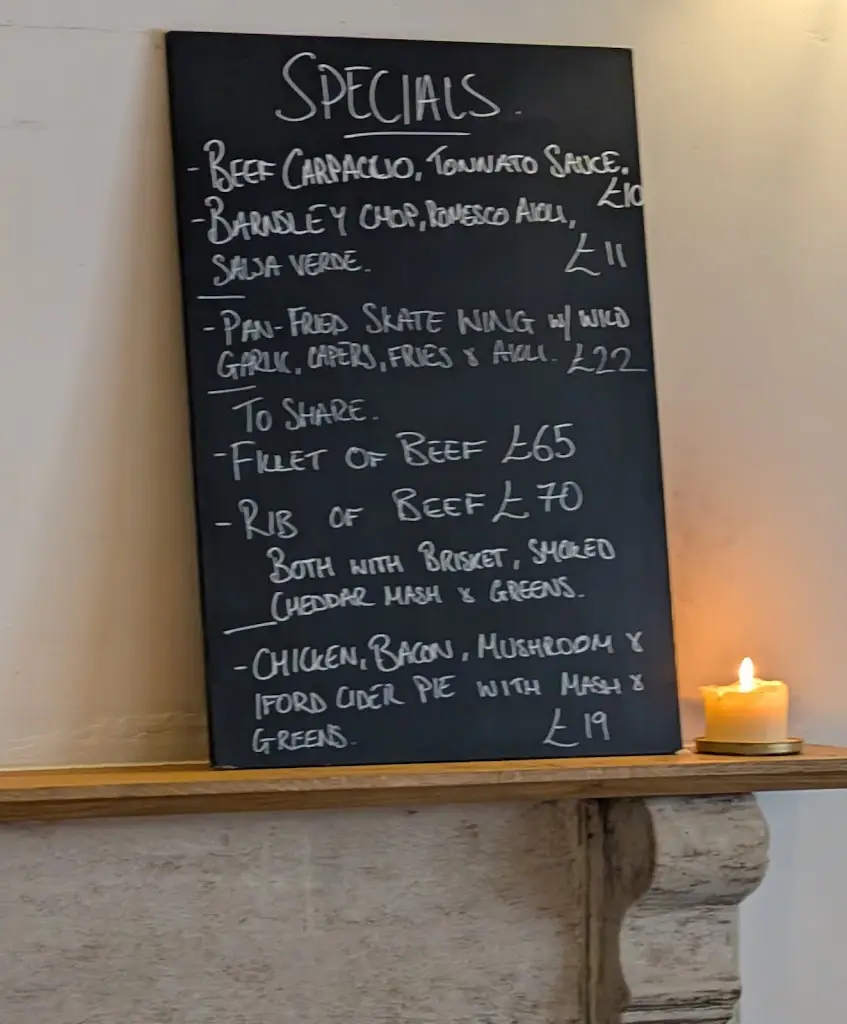 SPECIALS.
- BEEF CARPACCIO, TONNATO SAUCE.
£10
- BARNSLEY CHOP, ROMESCO AIOLI,
SALSA VERDE. £11
- PAN-FRIED SKATE WING W/ WILD
GARLIC, CAPERS, FRIES & AIOLI. £22
TO SHARE.
- FILLET OF BEEF £65
- RIB OF BEEF £70
BOTH WITH BRISKET, SMOKED
CHEDDAR MASH & GREENS.
- CHICKEN, BACON, MUSHROOM &
IFORD CIDER PIE WITH MASH &
GREENS. £19